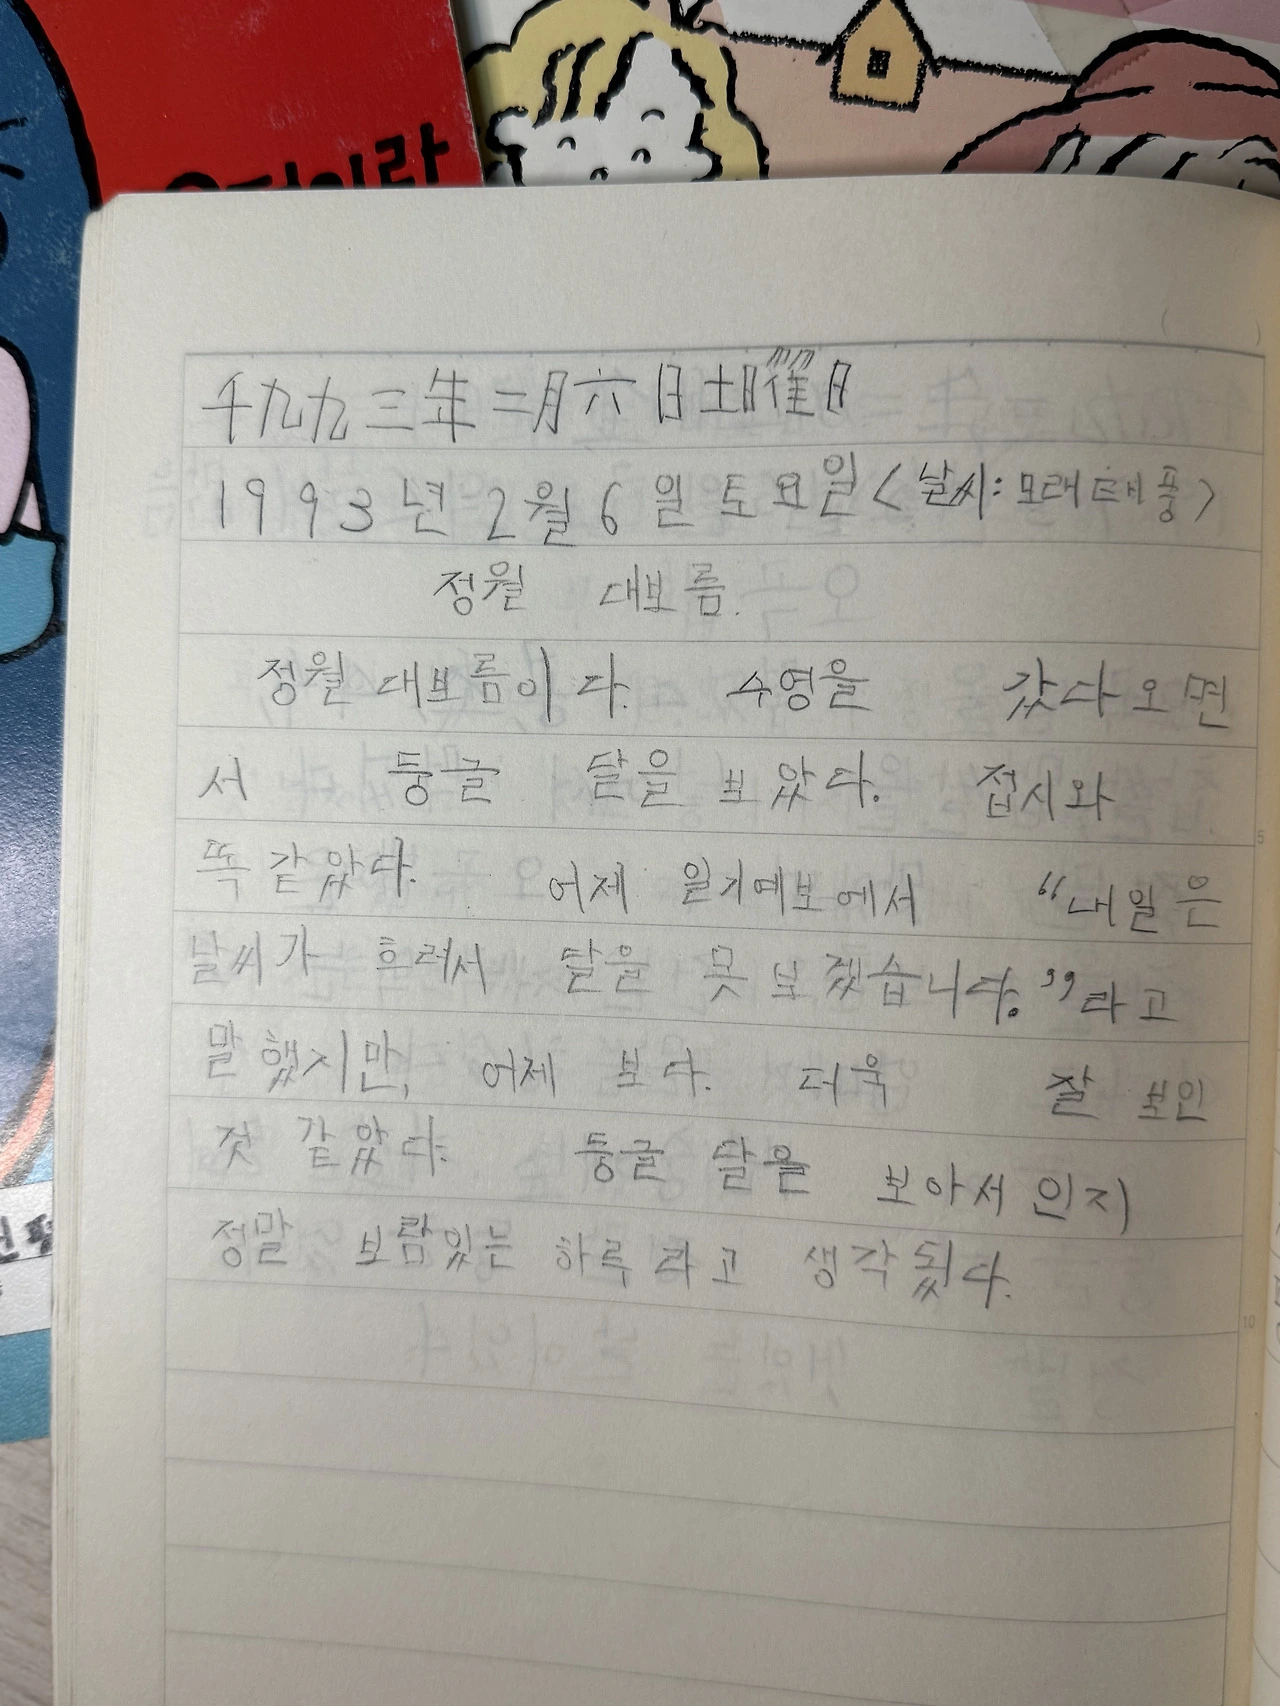 千九九三年二月六日土曜日
1993년 2월 6일 토요일 <날씨: 모래태풍>
정월 대보름.
정월 대보름이다. 수영을 갔다오면
서 둥글 달을 보았다. 접시와
똑같았다. 어제 일기예보에서 "내일은
날씨가 흐려서 달을 못 보겠습니다."라고
말했지만, 어제 보다. 더욱 잘 보인
것 같았다. 둥글 달을 보아서 인지
정말 보람있는 하루라고 생각됬다.
5
10